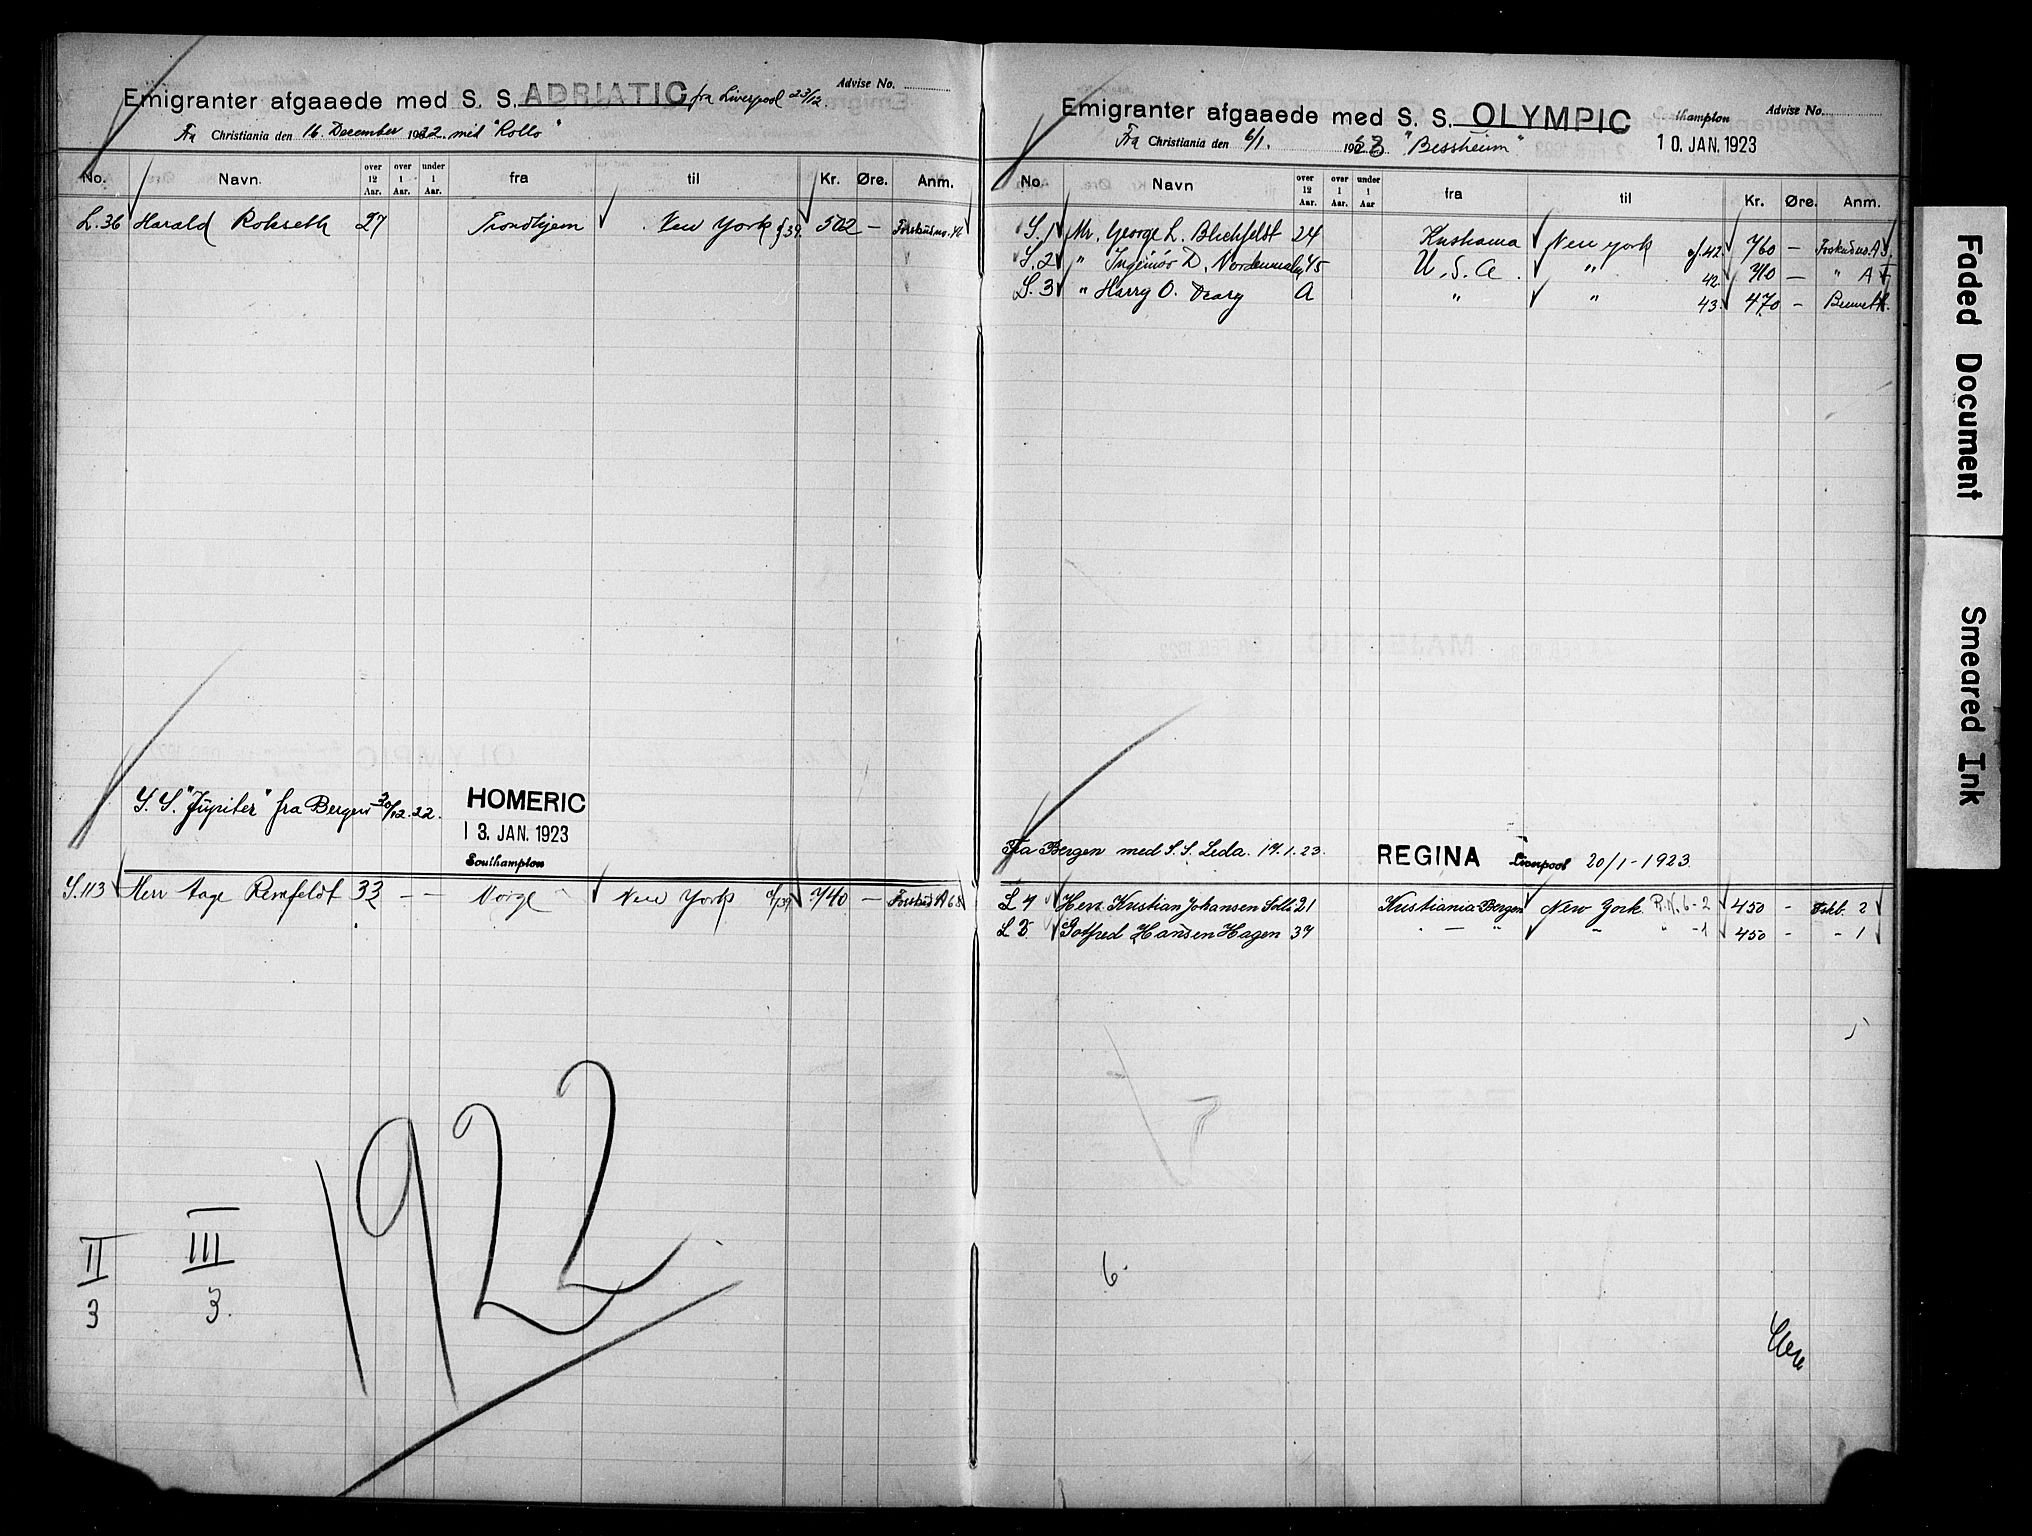 Emigranter afgaaede med S. S. ADRIATIC fra Liverpool 23/12. Advise No.
Fra Christiania den 16. December 1922 med "Rollo"
No. Navn. over 12 Aar. over 1 Aar. under 1 Aar. fra til Kr. Øre. Anm.
L. 36 Harald Rokseth 27 Trondhjem New York 39. 502 —
S. S. "Jupiter" fra Bergen 30/12. 22. HOMERIC
3. JAN. 1923
Southampton
S. 113 Herr Aage Remfeldt 33 — — Norge New York 740 — A 68
1922
II
3
III
3.
Emigranter afgaaede med S. S. OLYMPIC Advise No.
Fra Christiania den 6/1. "Bessheim" 10. JAN. 1923
No. Navn over 12 Aar. over 1 Aar. under 1 Aar fra til Kr. Øre. Anm.
S. 1 Mr. George L. Blichfeldt 24 Kristiania New York 42. 760 —
S. 2 " Ingemar D. 45 U. S. A. " 42 710 — " A
S. 3 " Harry O. A " " 43. 470 – Bennett.
Fra Bergen med S. S. Leda. 17. 1. 23. REGINA Liverpool 20/1 - 1923
L 4 Herr Kristian Johansen 21 Kristiania Bergen New York. R.N. 6-2 450 - 2
L 5 Gotfred Hansen Hagen 37 - — " — " -1 450 - - 1
6.
Faded Document
Smeared Ink